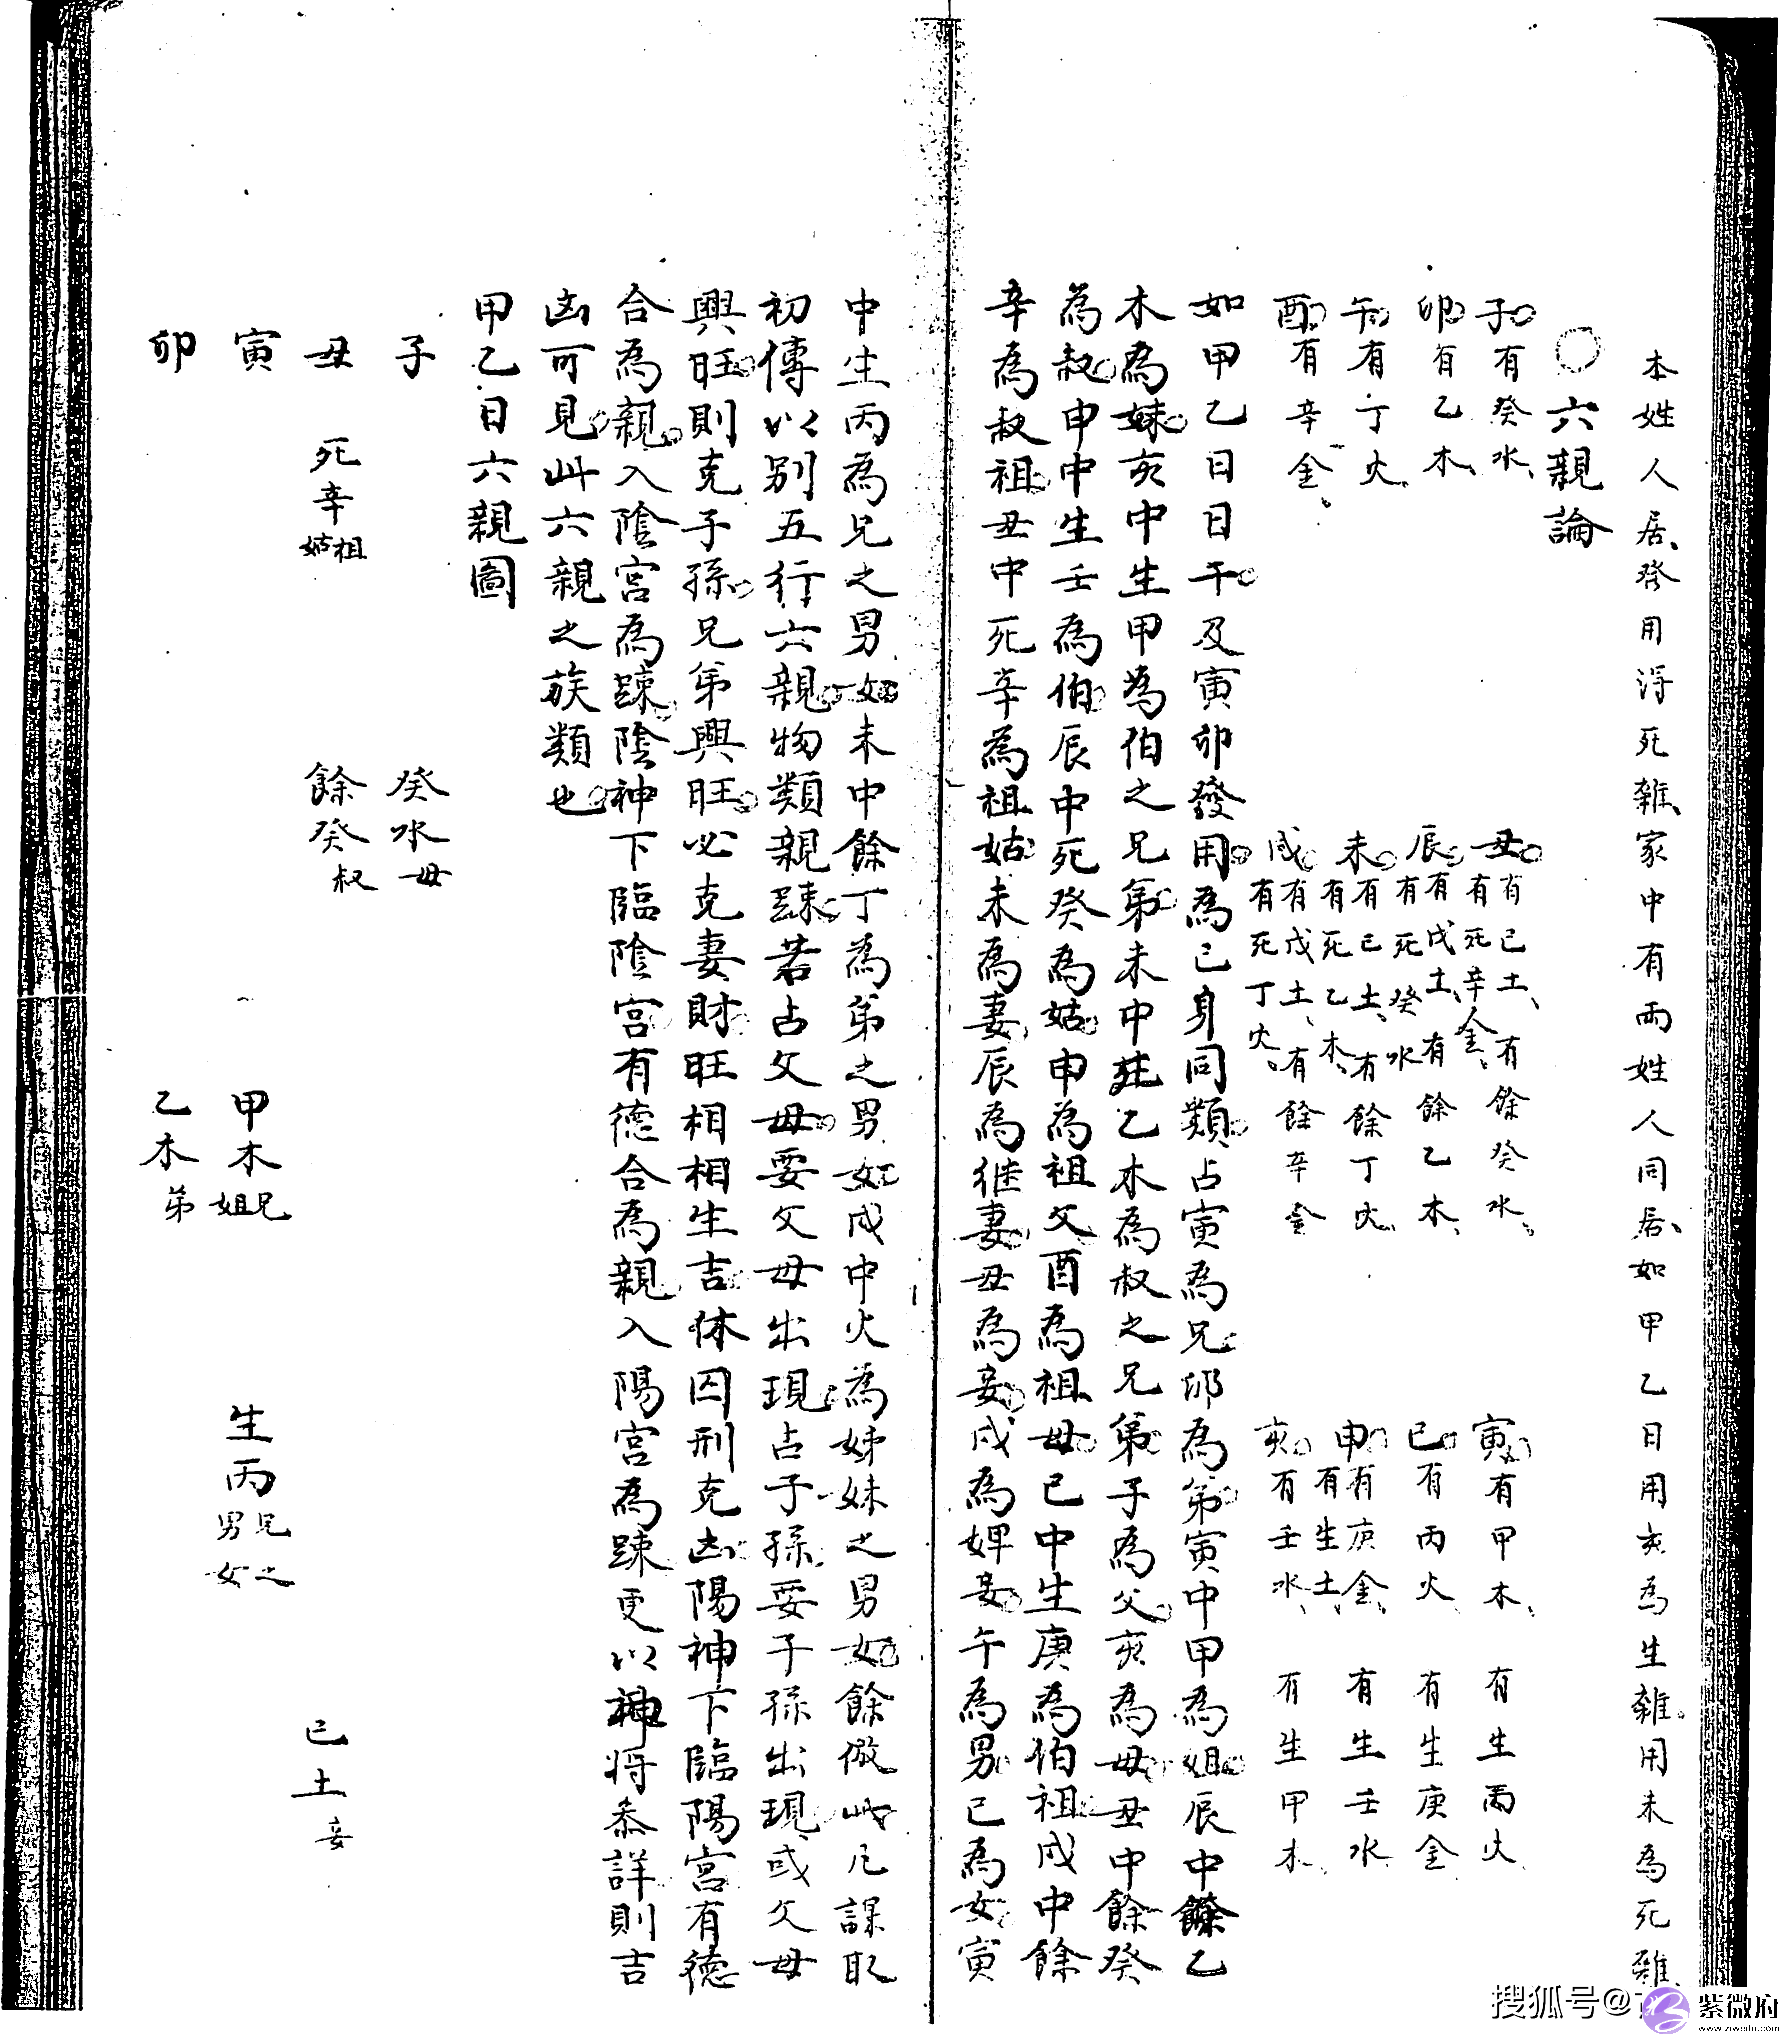 本姓人居、發用得死雜、家中有兩姓人同居、如甲乙日用亥為生雜。用未為死雜、
○六親論
子。有癸水、
丑。有己土、有餘癸水、
有死辛金、
寅。有甲木、有生丙火
卯。有乙木、
辰。有戊土、有餘乙木、
有死癸水
巳。有丙火、有生庚金
午。有丁火
未。有己土、有餘丁火、
有死乙木、
申。有庚金、有生壬水
有生土、
酉。有辛金、
戌。有戊土、有餘辛金
有死丁火。
亥。有壬水、有生甲木、
如甲乙日日干。及寅卯發用。為己身同類。占寅為兄。卯為弟。寅中甲為姐。辰中餘乙
木為妹。亥中生甲為伯之兄弟。未中死乙木為叔之兄弟。子為父。亥為母。丑中餘癸
為叔。申中生壬為伯。辰中死癸為姑。申為祖父酉為祖母。巳中生庚為伯祖。戌中餘
辛為叔祖。丑中死辛為祖姑。未為妻。辰為继妻。丑為妾。戌為婢妾。午為男。巳為女。寅
中生丙為兄之男女。未中餘丁為弟之男女。戌中火為姊妹之男女。餘倣此凡課取
初傳以别五行六親。物類親踈。若占父母。要父母出現。占子孫。要子孫出現。或父母
興旺。則克子孫。兄弟興旺。必克妻財。旺相相生吉。休囚刑克凶。陽神下臨陽宮有德
合為親。入陰宮為踈。陰神下臨陰宮。有德合為親。入陽宮為踈更以神将叅詳則吉
凶可見。此六親之族類也。
甲乙日六親圖
子 癸水母
丑 死辛祖姑 餘癸叔 己土妾
寅 甲木兄姐 生丙兄之男女
卯 乙木弟
搜狐号@
紫微府